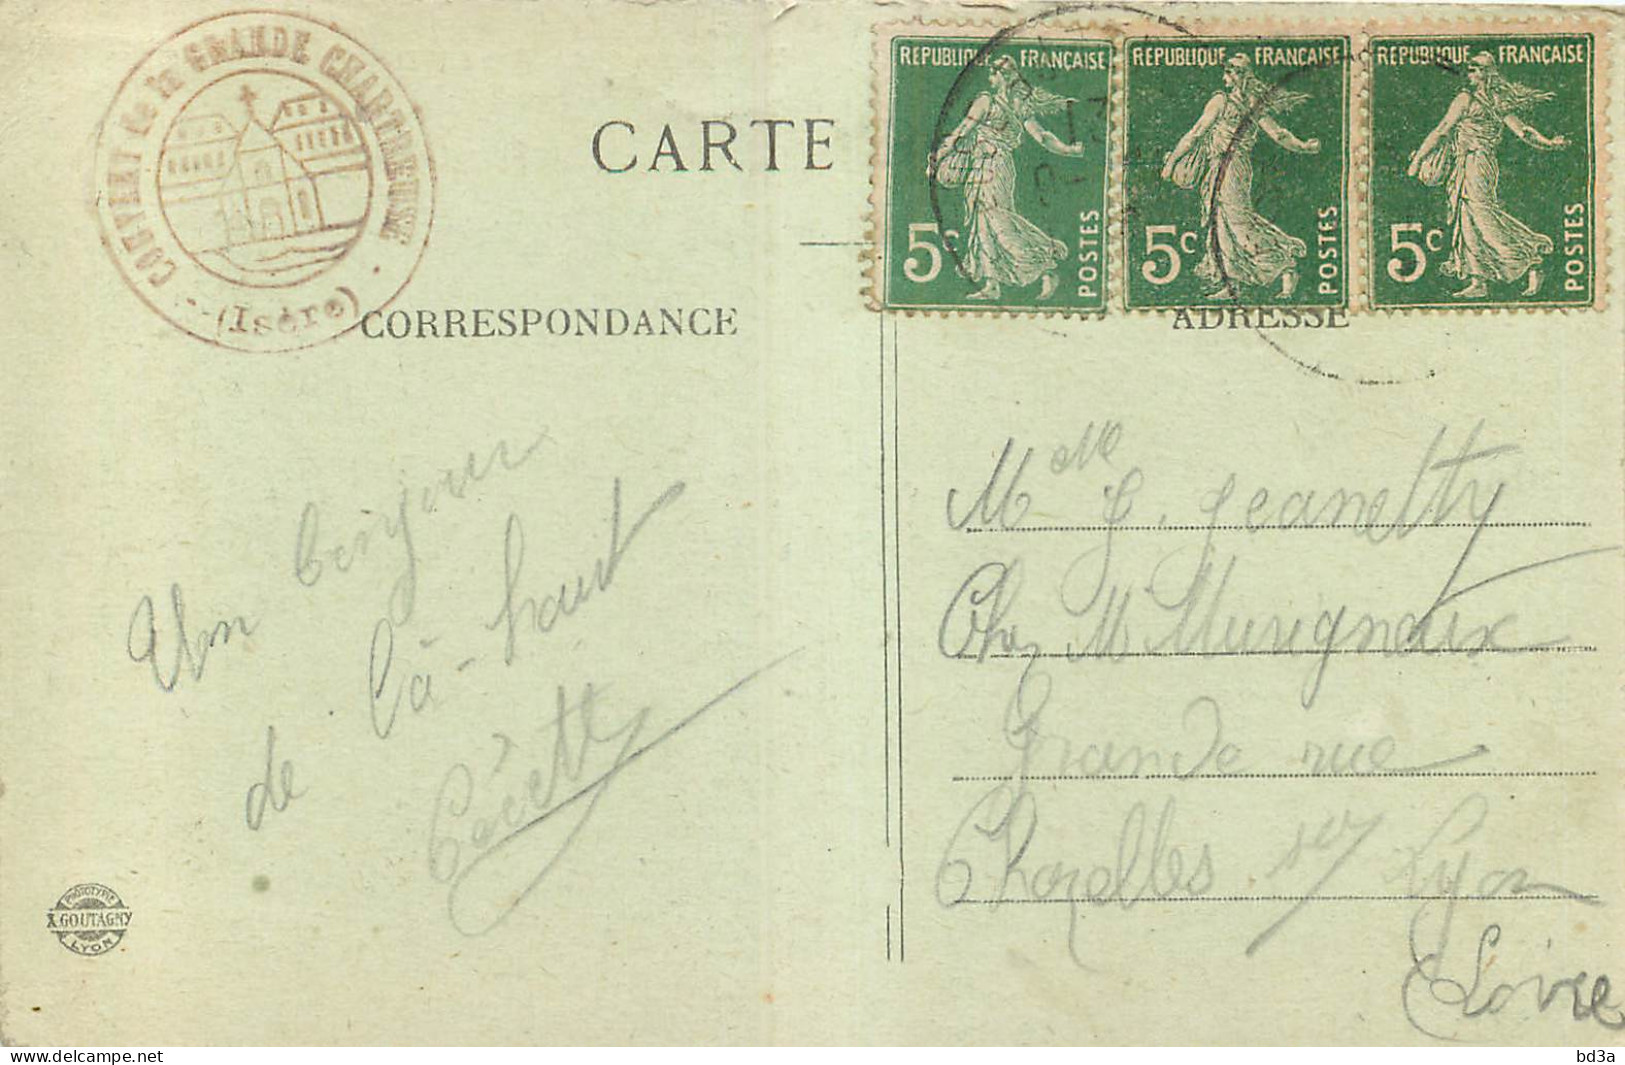 COUVENT de la GRANDE CHARTREUSE
(Isère)
CARTE
REPUBLIQUE FRANÇAISE
5c
POSTES
REPUBLIQUE FRANÇAISE
5c
POSTES
REPUBLIQUE FRANÇAISE
5c
POSTES
CORRESPONDANCE
ADRESSE
Un bonjour
de là-haut
Mlle J. Jeanetty
Chez M
Grande rue
Chazelles sur Lyon
Loire
PHOTOTYPIE
X. GOUTAGNY
LYON
www.delcampe.net
bd3a